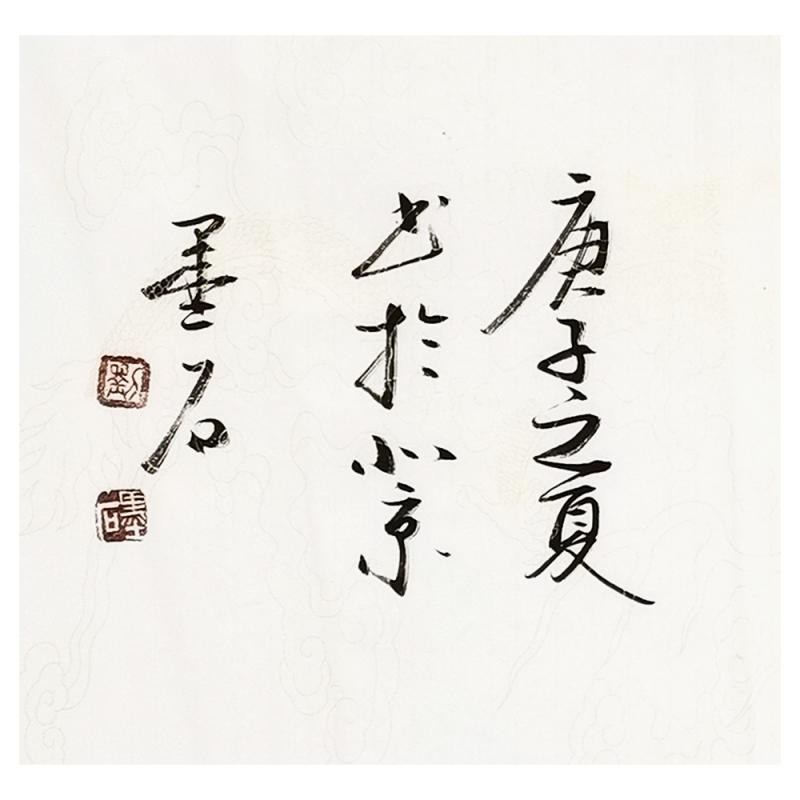 庚子之夏
书於北京
墨石
劉
墨石